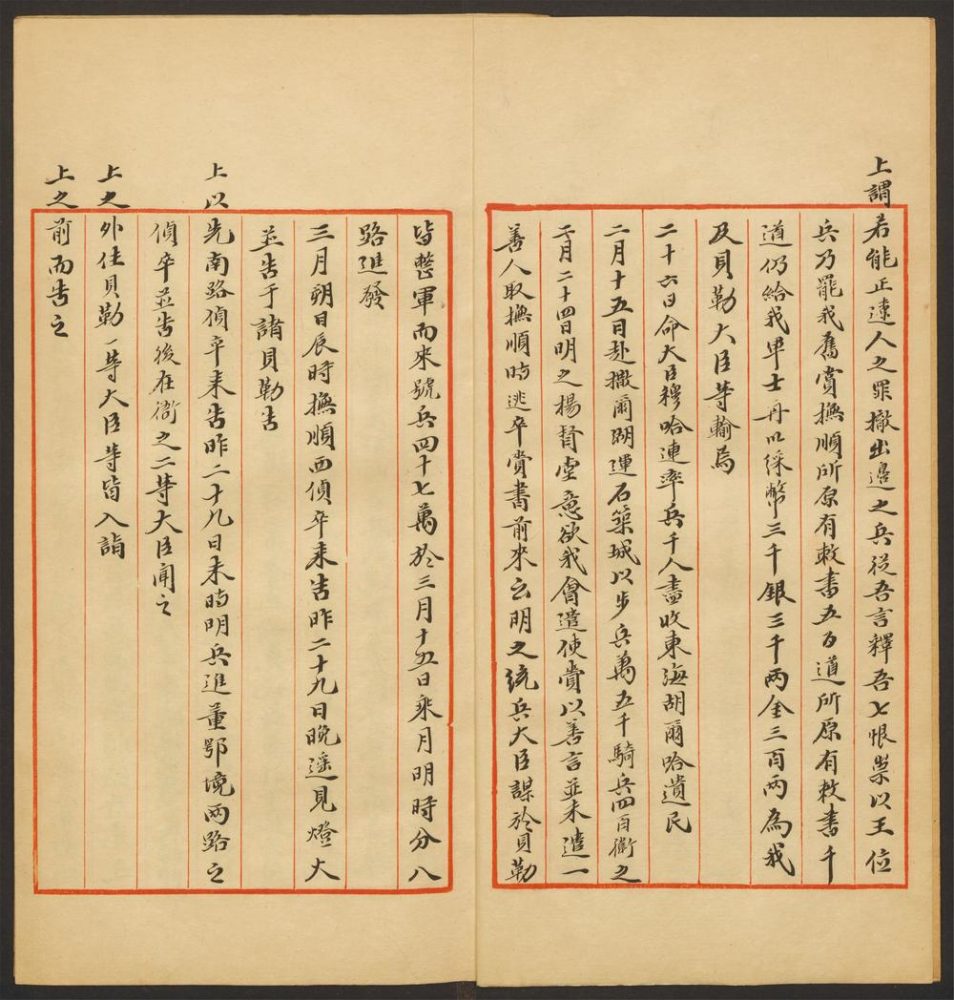 上謂若能正遼人之罪撤出邊之兵從吾言釋吾七恨崇以王位
兵乃罷我舊賞撫順所原有敕書五百道所原有敕書千
道仍給我軍士再以綵幣三千銀三千兩金三百兩為我
及貝勒大臣等輸焉
二十六日命大臣穆哈連率兵千人盡收東海胡爾哈遺民
二月十五日赴撒爾湖運石築城以步兵萬五千騎兵四百衛之
二月二十四日明之楊督虛意欲我會遣使賫以善言並未遣一
善人取撫順時逃卒賫書前來云明之統兵大臣謀於貝勒
皆整軍而來號兵四十七萬於三月十五日乘月明時分八
路進發
三月朔日辰時撫順西偵卒来告昨二十九日晚遥見燈火
並告于諸貝勒告
上以先南路偵卒来告昨二十九日未時明兵進董鄂境兩路之
偵卒並告後在衙之二等大臣聞之
上之外住貝勒一等大臣等皆入詣
上之前而告之